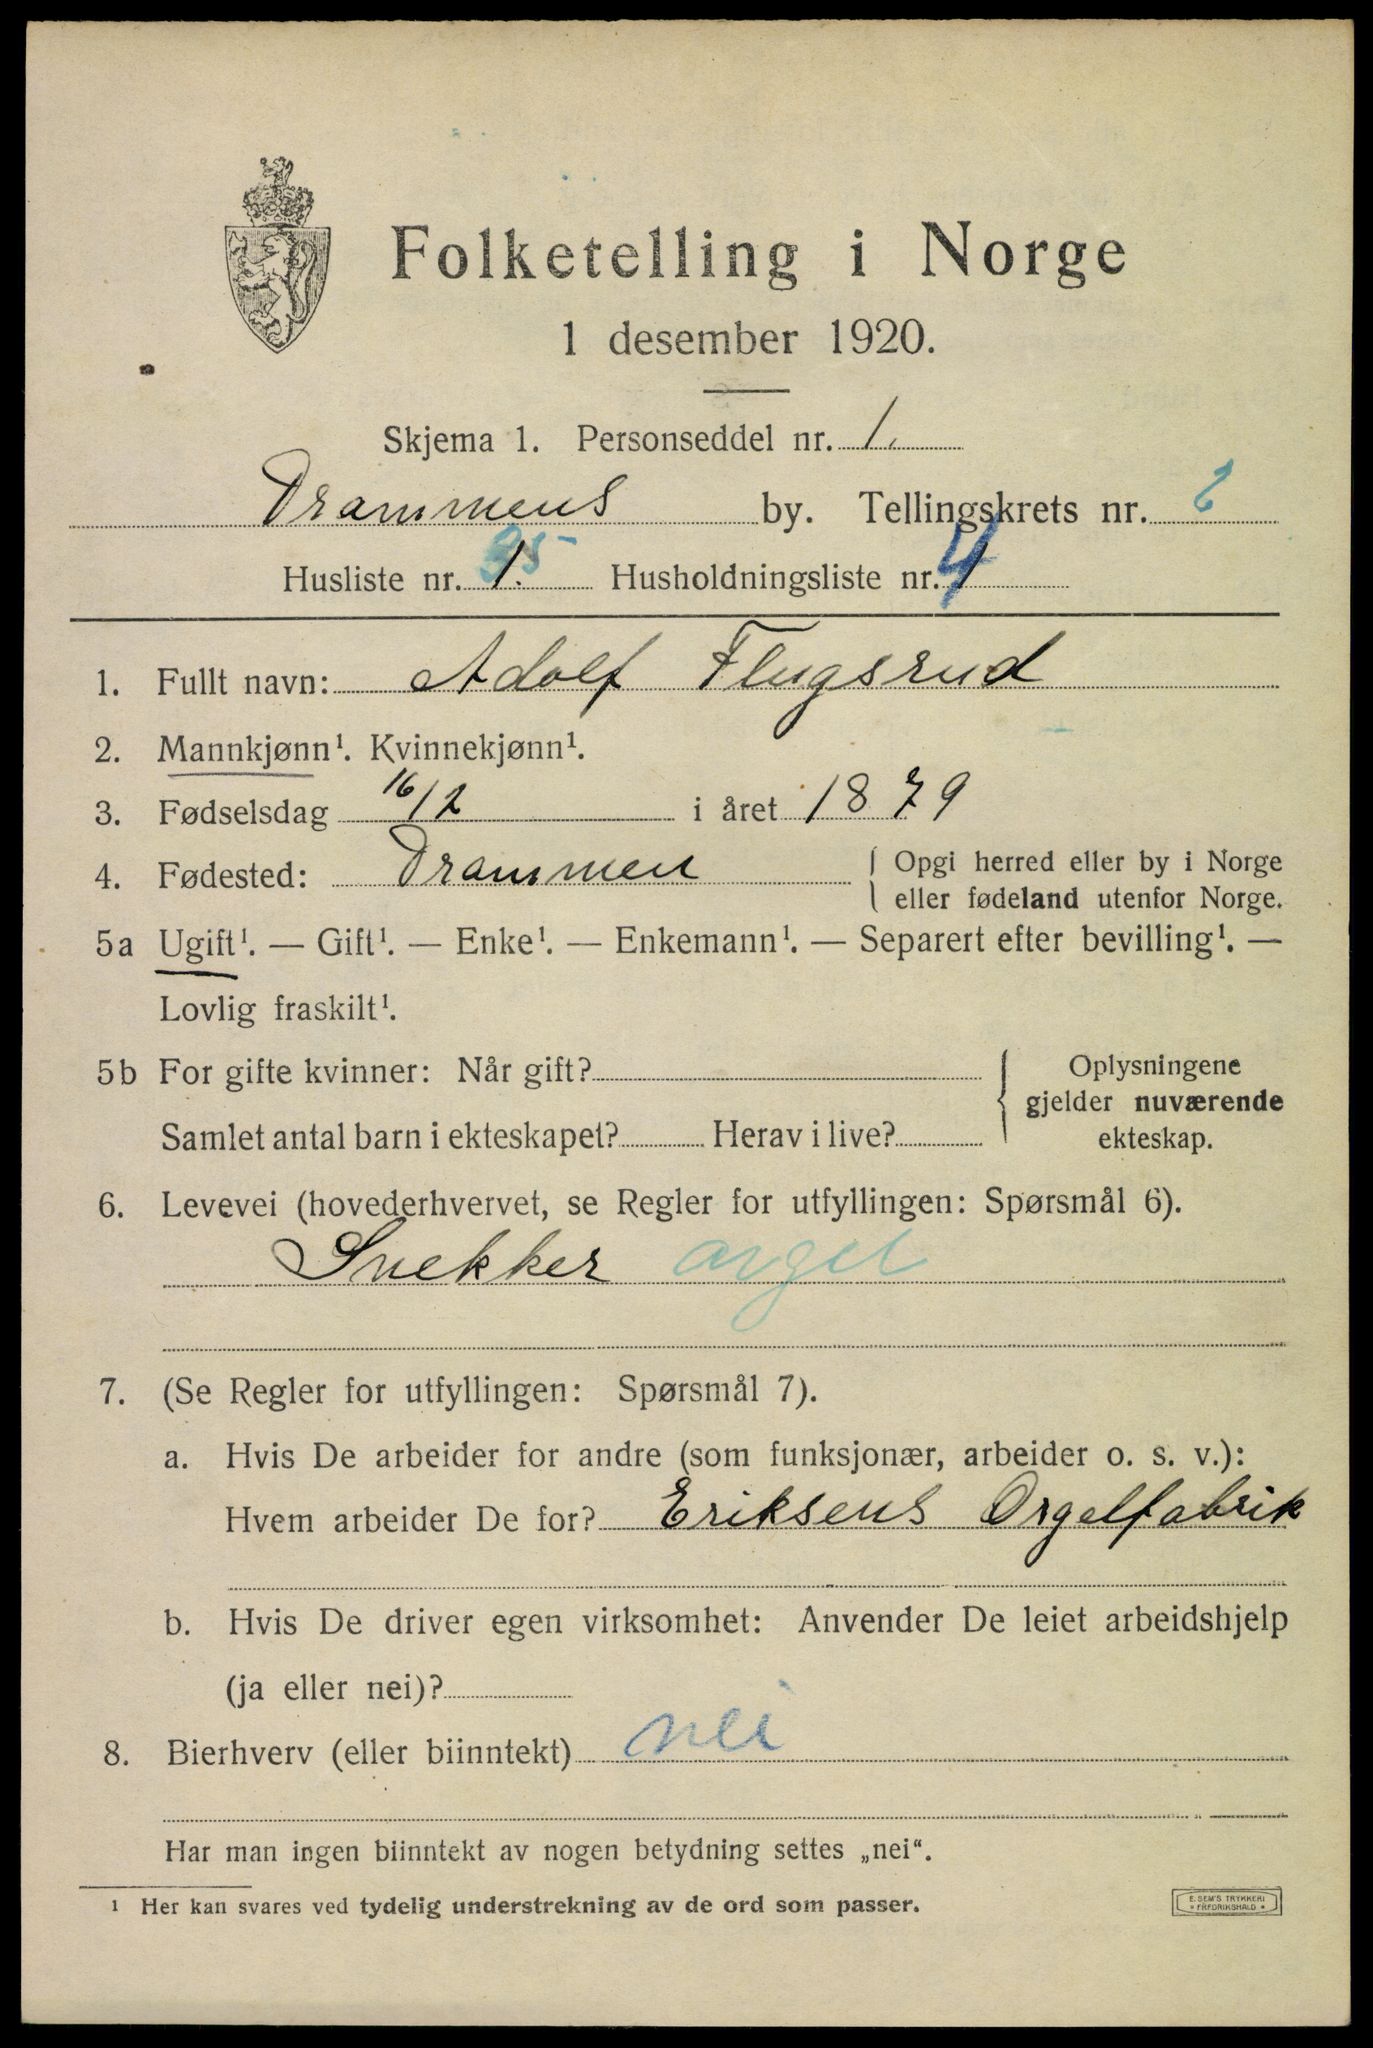 Folketelling i Norge
1 desember 1920.
Skjema 1. Personseddel nr. 1.
Drammens by. Tellingskrets nr.
Husliste nr. 1. 35 Husholdningsliste nr. 1 4
1. Fullt navn: Adolf Flugsrud
2. Mannkjønn¹. Kvinnekjønn¹.
3. Fødselsdag 16/12 i året 1879
4. Fødested: Drammen { Opgi herred eller by i Norge
eller fødeland utenfor Norge.
5a Ugift¹. — Gift¹. — Enke¹. — Enkemann¹. — Separert efter bevilling¹. —
Lovlig fraskilt¹.
5b For gifte kvinner: Når gift? { Oplysningene
gjelder nuværende
Samlet antal barn i ekteskapet? Herav i live? ekteskap.
6. Levevei (hovederhvervet, se Regler for utfyllingen: Spørsmål 6).
Snekker orgel
7. (Se Regler for utfyllingen: Spørsmål 7).
a. Hvis De arbeider for andre (som funksjonær, arbeider o. s. v.):
Hvem arbeider De for? Eriksens Orgelfabrik
b. Hvis De driver egen virksomhet: Anvender De leiet arbeidshjelp
(ja eller nei)?
8. Bierhverv (eller biinntekt) nei
Har man ingen biinntekt av nogen betydning settes „nei“.
¹ Her kan svares ved tydelig understrekning av de ord som passer.
E. SEM'S TRYKKERI
* FREDRIKSHALD *